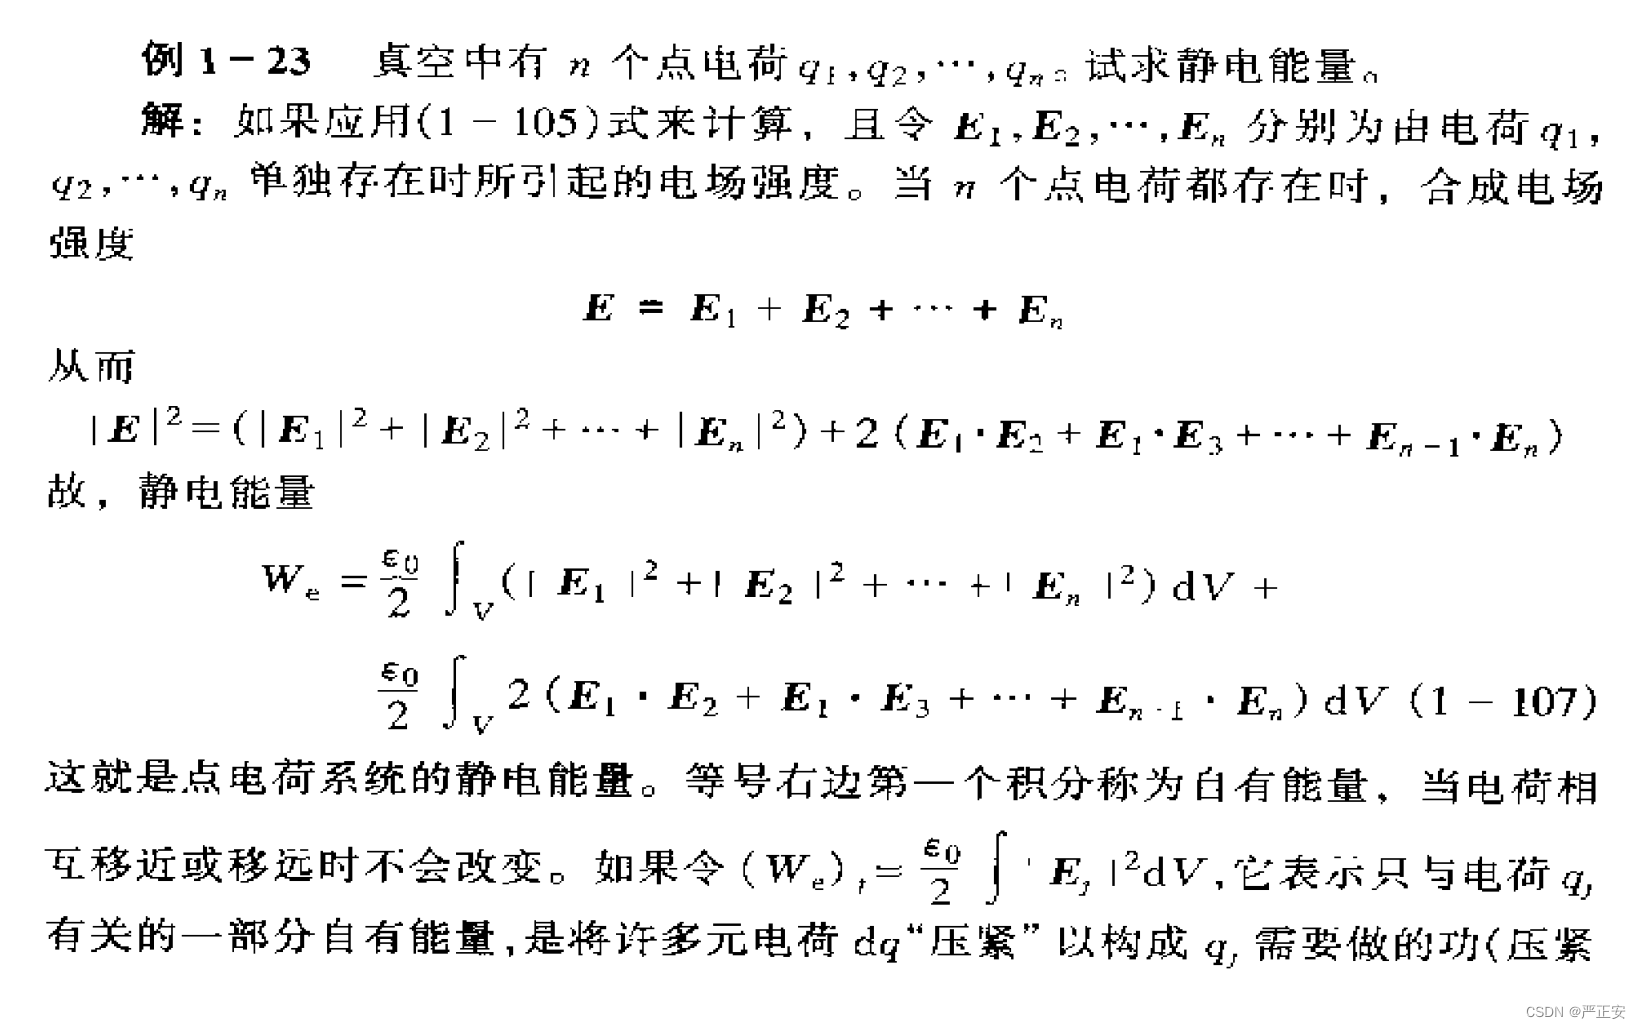 例 1-23 真空中有 n 个点电荷 q₁,q₂,⋯,qₙ。试求静电能量。
解：如果应用(1-105)式来计算，且令 E₁,E₂,⋯,Eₙ 分别为由电荷 q₁,
q₂,⋯,qₙ 单独存在时所引起的电场强度。当 n 个点电荷都存在时，合成电场
强度
E = E₁ + E₂ + ⋯ + Eₙ
从而
|E|²=(|E₁|²+|E₂|²+⋯+|Eₙ|²)+2(E₁·E₂+E₁·E₃+⋯+Eₙ₋₁·Eₙ)
故，静电能量
Wₑ = ε₀/2 ∫_V (|E₁|²+|E₂|²+⋯+|Eₙ|²)dV +
ε₀/2 ∫_V 2(E₁·E₂+E₁·E₃+⋯+Eₙ₋₁·Eₙ)dV (1-107)
这就是点电荷系统的静电能量。等号右边第一个积分称为自有能量，当电荷相
互移近或移远时不会改变。如果令(Wₑ)ⱼ=ε₀/2 ∫|Eⱼ|²dV,它表示只与电荷 qⱼ
有关的一部分自有能量,是将许多元电荷 dq“压紧”以构成 qⱼ 需要做的功(压紧
CSDN @严正安